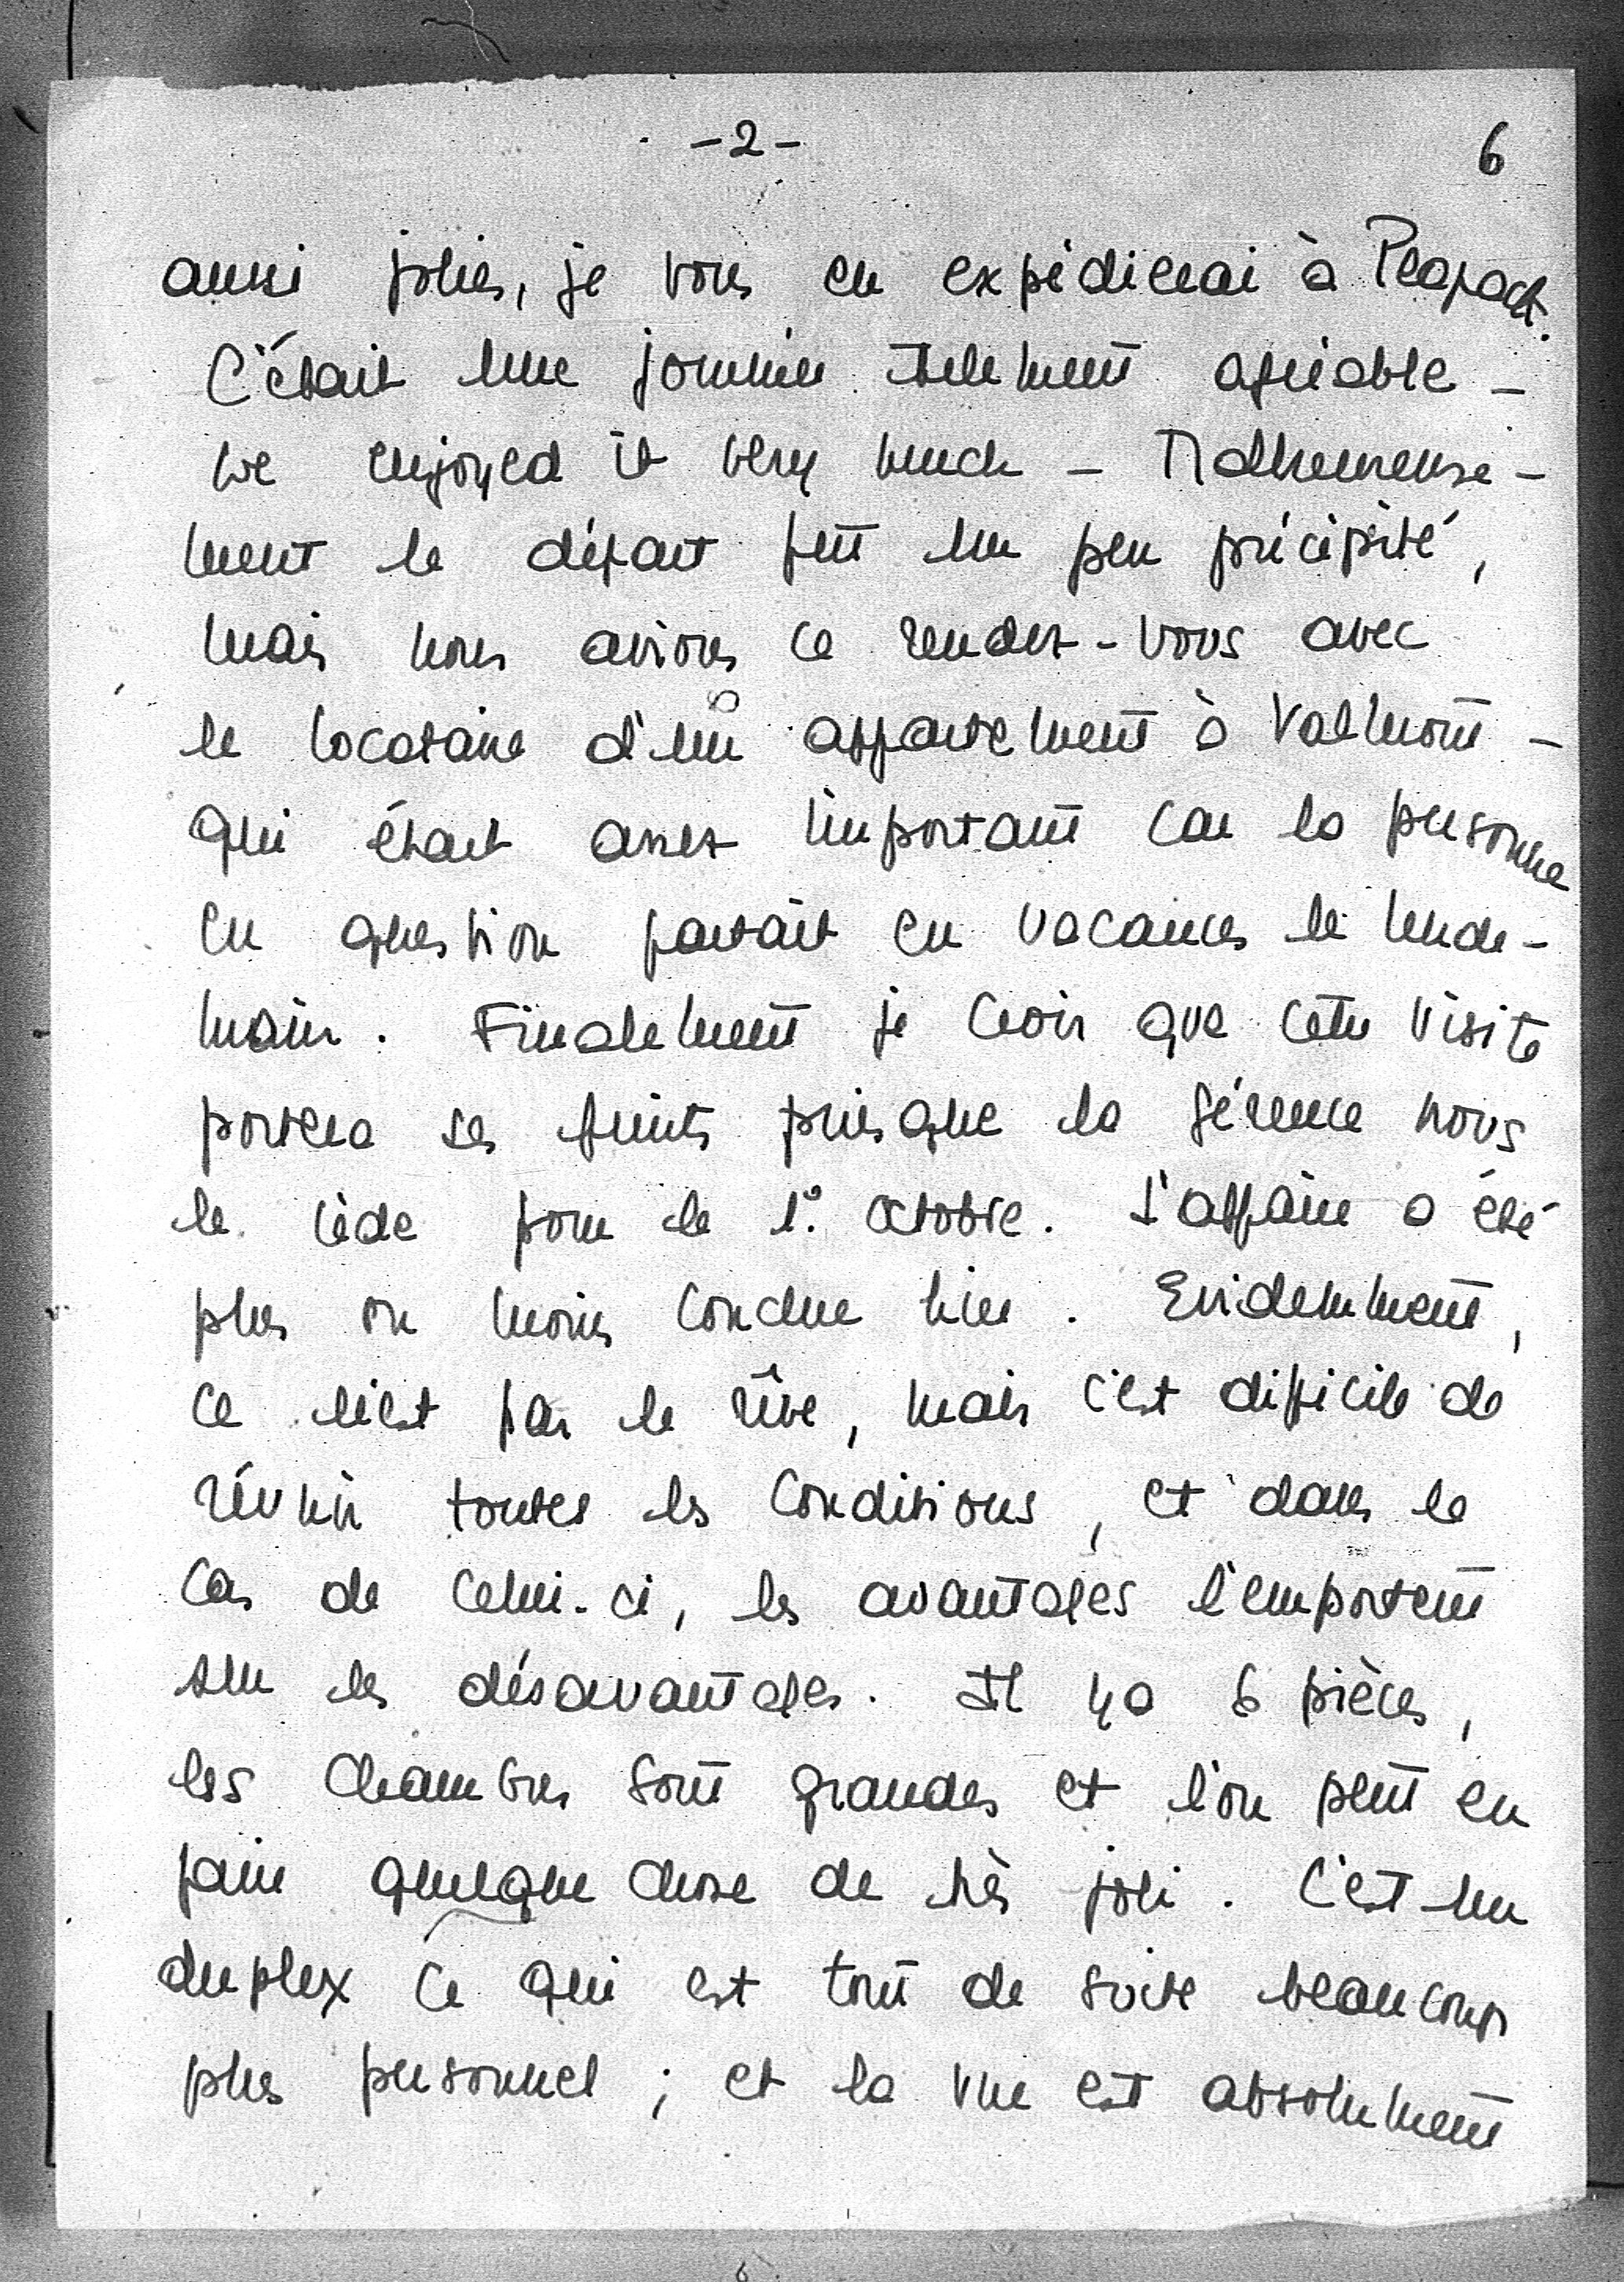 -2- 6
aussi jolies, je vous en expédierai à Peapack.
C'était une journée tellement agréable -
we enjoyed it very much - Malheureuse-
ment le départ fut un peu précipité,
mais nous avions ce rendez-vous avec
le locataire d'un appartement à Valmont -
qui était assez important car la personne
en question partait en vacances le lende-
main. Finalement je crois que cette visite
portera ses fruits puisque la gérance nous
le cède pour le 1° octobre. L'affaire a été
plus ou moins conclue hier. Evidemment,
ce n'est pas le rêve, mais c'est difficile de
réunir toutes les conditions, et dans le
cas de celui-ci, les avantages l'emportent
sur les désavantages. Il y a 6 pièces,
les chambres sont grandes et l'on peut en
faire quelque chose de très joli. C'est un
duplex ce qui est tout de suite beaucoup
plus personnel ; et la vue est absolument